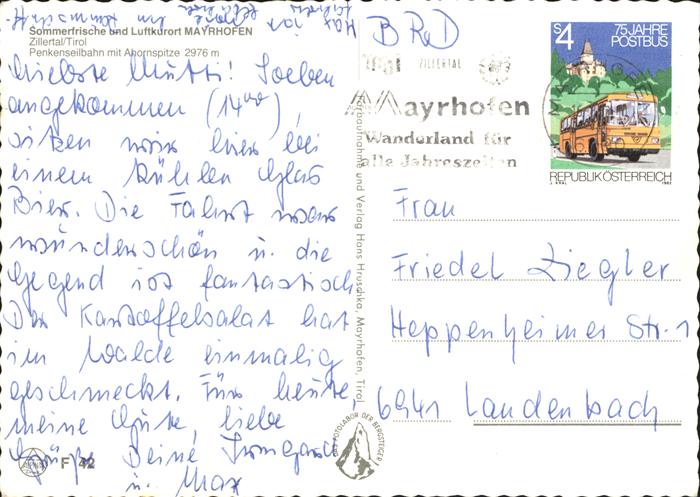 BRD
Sommerfrische und Luftkurort MAYRHOFEN
Zillertal/Tirol
Penkenseilbahn mit Ahornspitze 2976 m
Liebste Mutti! Soeben
angekommen (14⁰⁰),
sitzen wir hier bei
einem kühlen Glas
Bier. Die Fahrt war
wunderschön u. die
Gegend ist fantastisch.
Der Kartoffelsalat hat
im Walde einmalig
geschmeckt. Für heute,
meine Gute, liebe
Grüße Deine Irmgard
u. Max
F 42
Farbaufnahme und Verlag Hans Hruschka, Mayrhofen, Tirol
FOTOLABOR DER BERGSTEIGER
ZILLERTAL
Mayrhofen
Wanderland für
alle Jahreszeiten
S 4
75 JAHRE
POSTBUS
REPUBLIK ÖSTERREICH
1982
Frau
Friedel Ziegler
Heppenheimer Str. 1
6941 Laudenbach